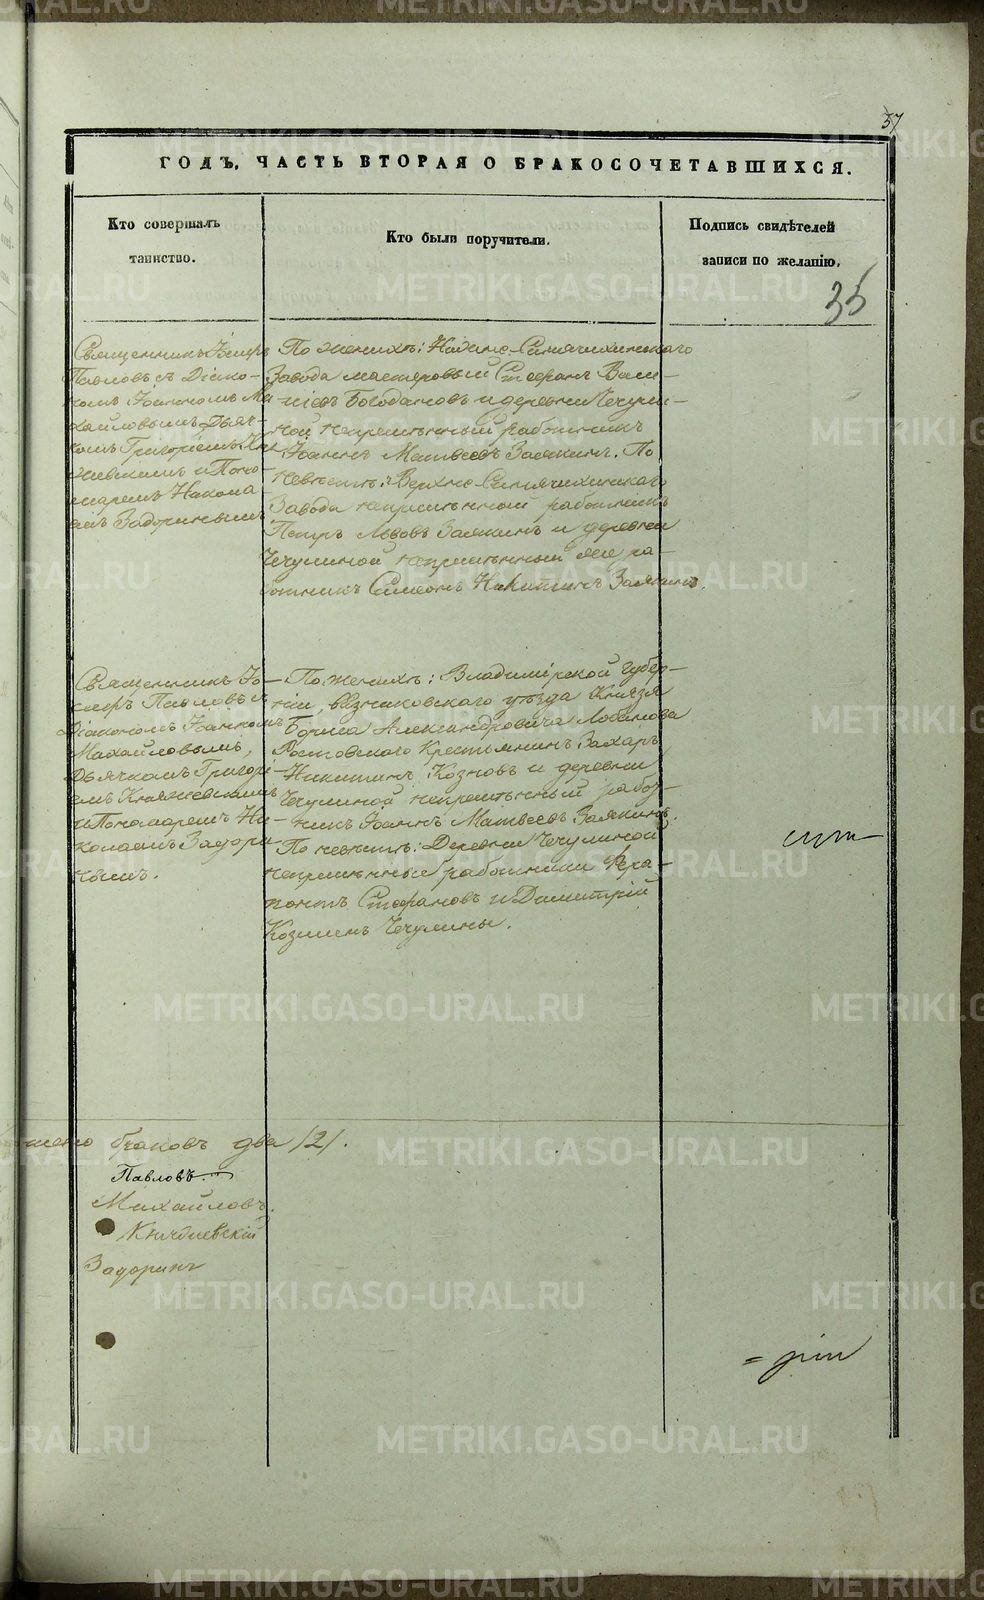 57
ГОДЪ, ЧАСТЬ ВТОРАЯ О БРАКОСОЧЕТАВШИХСЯ.
Кто совершалъ
таинство.
Кто были поручители.
Подпись свидѣтелей
записи по желанію.
35
Священникъ Іосифъ
Павловъ съ Діако-
номъ Іоанномъ Ми-
хайловымъ, Дьяч-
комъ Григоріемъ Кня-
жевскимъ и Поно-
маремъ Никола-
емъ Задоринымъ
По женихѣ: Нижне-Синячихинскаго
Завода мастеровый Стефанъ Васи-
ліевъ Богодановъ и деревни Чечули-
ной непремѣнный работникъ
Іоаннъ Матвеевъ Заякинъ. По
невѣстѣ: Верхне-Синячихинскаго
Завода непремѣнный работникъ
Петръ Львовъ Заякинъ и деревни
Чечулиной непремѣнный же ра-
ботникъ Симеонъ Никитинъ Заякинъ.
Священникъ Іо-
сифъ Павловъ съ
Діакономъ Іоанномъ
Михайловымъ,
Дьячкомъ Григорі-
емъ Княжевскимъ
и Пономаремъ Ни-
колаемъ Задори-
нымъ.
По женихѣ: Владимірской губер-
ніи, Вязниковскаго уѣзда Князя
Бориса Александровича Лобанова
Ростовскаго Крестьянинъ Захаръ
Никитинъ Козновъ и деревни
Чечулиной непремѣнный работ-
никъ Іоаннъ Матвеевъ Заякинъ.
По невѣстѣ: Деревни Чечулиной
непремѣнные работники Фера-
понтъ Стефановъ и Димитрій
Козминъ Чечулины.
браковъ два /2/.
Павловъ
Михайловъ.
Княжевскій
Задоринъ
METRIKI.GASO-URAL.RU